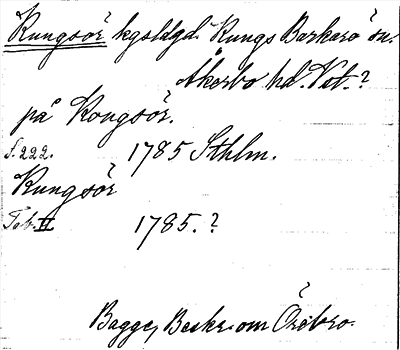 Kungsör kgsldgd. Kungs Barkarö sn.
Åkerbo hd. Vst.?
på Kongsör.
s. 222. 1785 Sthlm.
Kungsör
Tab. II 1785.?
Bagge, Beskr. om Örebro.